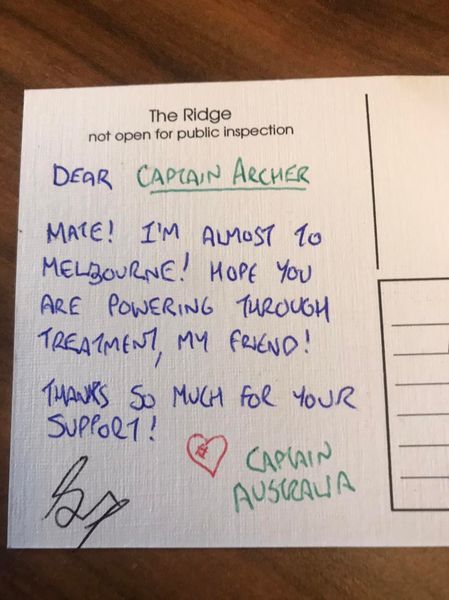 The Ridge
not open for public inspection
DEAR CAPTAIN ARCHER
MATE! I'M ALMOST TO
MELBOURNE! HOPE YOU
ARE POWERING THROUGH
TREATMENT, MY FRIEND!
THANKS SO MUCH FOR YOUR
SUPPORT!
CAPTAIN
AUSTRALIA